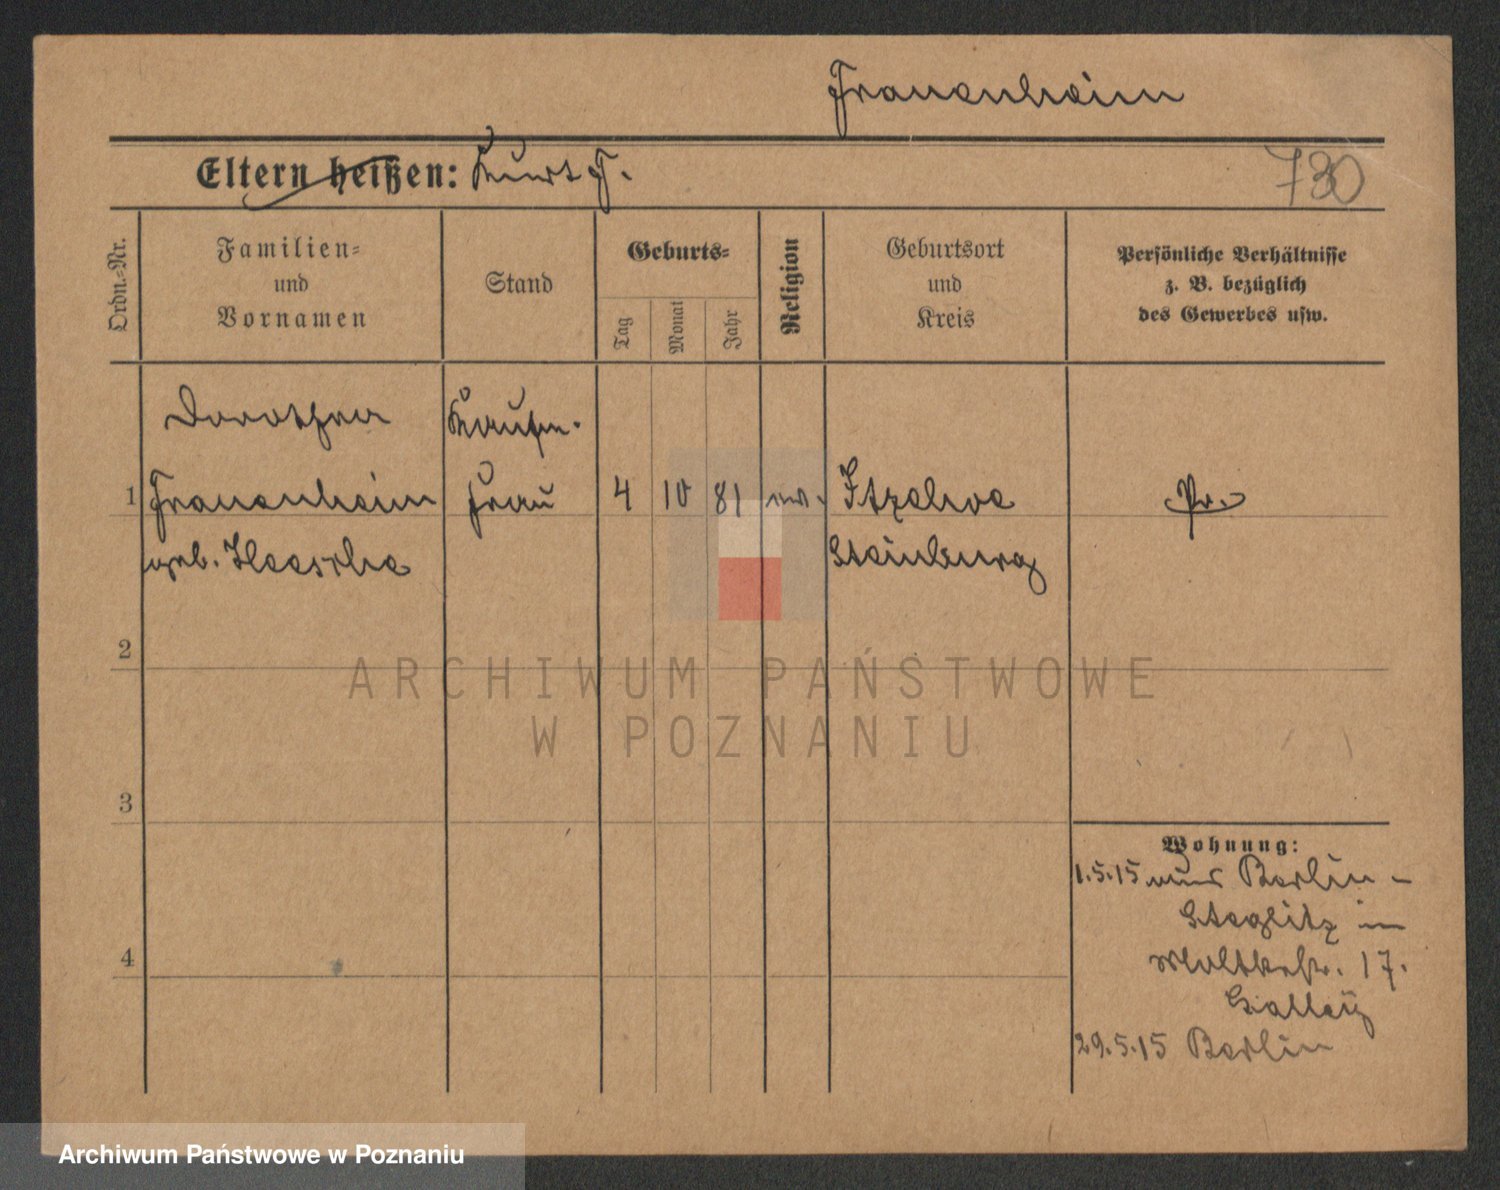 Frauenheim
Eltern heißen: Kurt F.
730
Ordn.=Nr.
Familien=
und
Vornamen
Stand
Geburts=
Tag
Monat
Jahr
Religion
Geburtsort
und
Kreis
Persönliche Verhältnisse
z. B. bezüglich
des Gewerbes usw.
Dorothea Kaufm.
1 Frauenheim frau 4 10 81 ev. Itzehoe Pr.
geb. Steinburg
2
3
4
Wohnung:
1.5.15 aus Berlin-
Steglitz in
Moltkestr. 17.
29.5.15 Berlin
ARCHIWUM PAŃSTWOWE
W POZNANIU
Archiwum Państwowe w Poznaniu